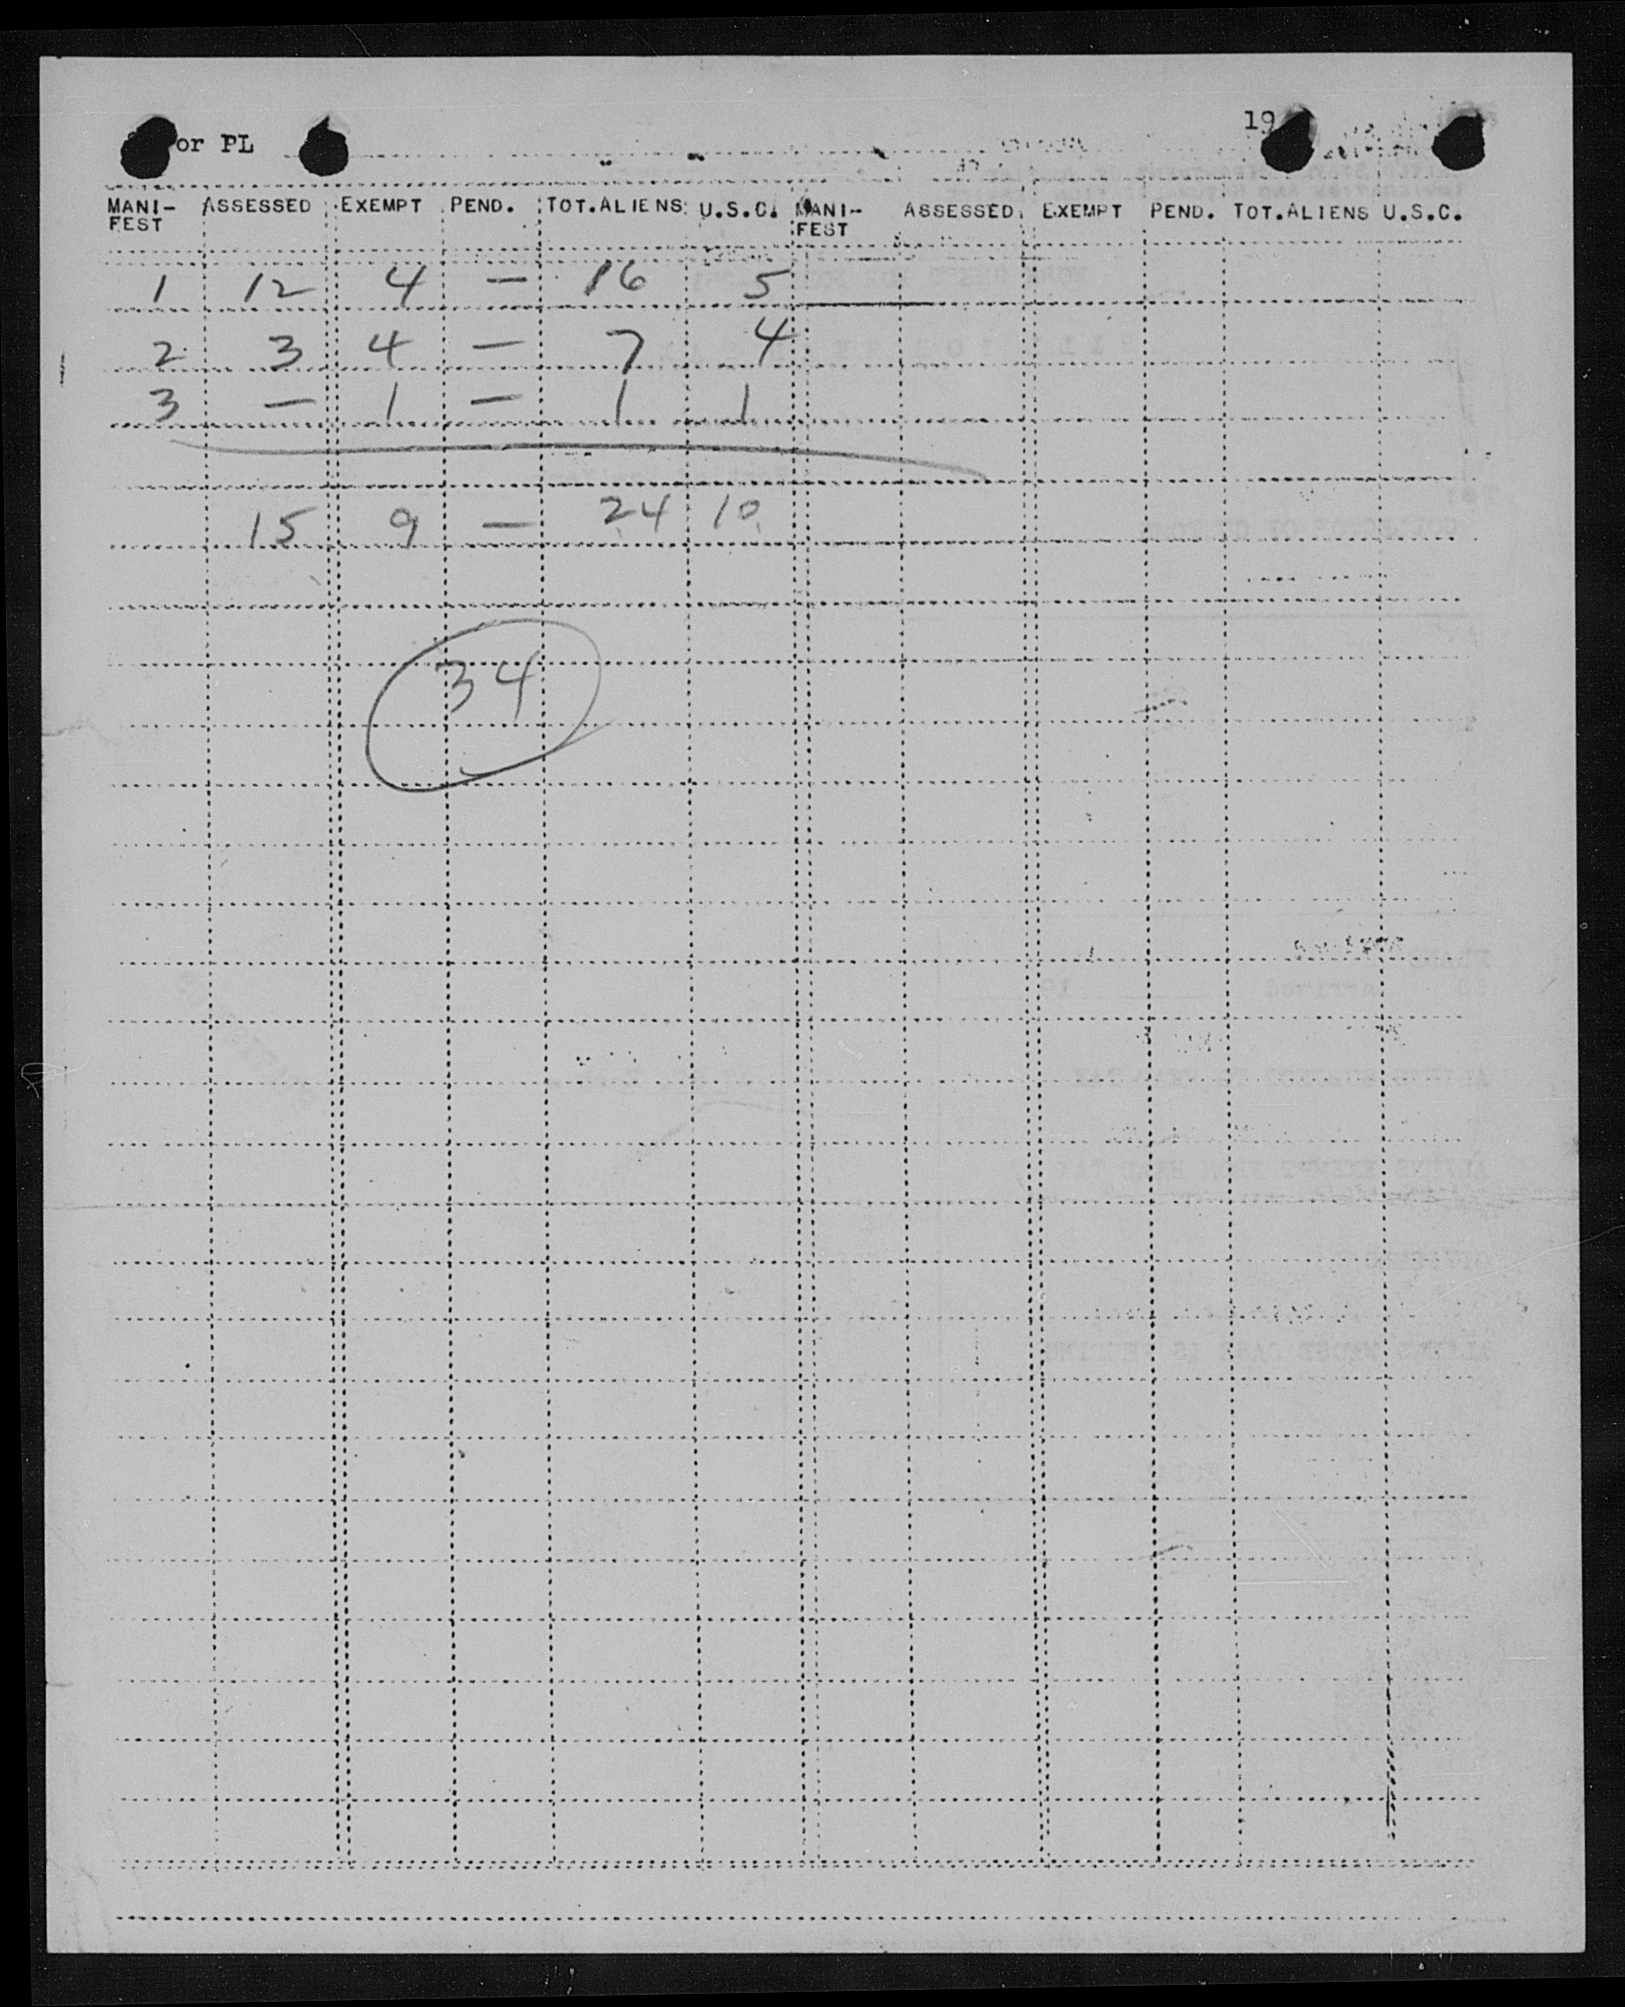 or PL 19
MANI- ASSESSED EXEMPT PEND. TOT.ALIENS U.S.C. MANI- ASSESSED EXEMPT PEND. TOT.ALIENS U.S.C.
FEST FEST
1 12 4 — 16 5
2 3 4 — 7 4
3 — 1 — 1 1
15 9 — 24 10
34